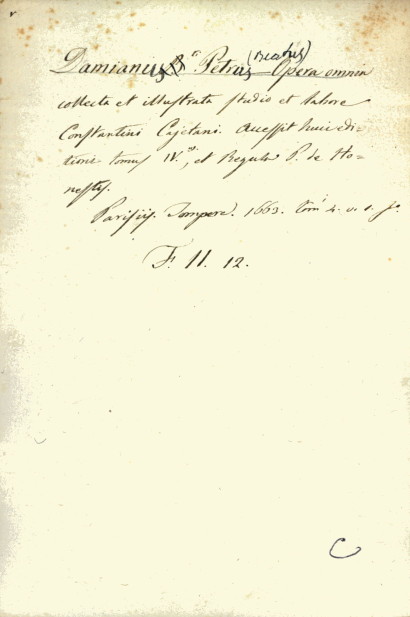 Damianus Petrus (Beatus) Opera omnia
collecta et illustrata studio et labore
Constantini Cajetani. Accessit huic edi-
tioni tomus IV.us, et Regula P. de Ho-
nestis.
Parisiis. 1663. tom. 4. v. 1. f.o
F. II. 12.
C